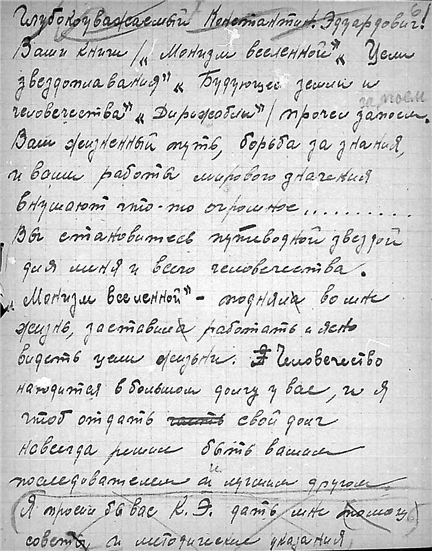 Глубокоуважаемый Константин Эдуардович!
Ваши книги /„Монизм вселенной" „Цели
звездоплавания" „Будующее земли и
человечества" „Дирижабли"/ прочел запоем.
запоем
Ваш жизненный путь, борьба за знания,
и ваши работы мирового значения
внушают что-то огромное..........
Вы становитесь путеводной звездой
для меня и всего человечества.
„Монизм вселенной" - подняла во мне
жизнь, заставила работать и ясно
видеть цели жизни. Человечество
находится в большом долгу у вас, и я
чтоб отдать часть свой долг
навсегда решил быть вашим
последователем и лучшим другом
Я просил бы вас К.Э. дать мне помогу
советы и методические указания